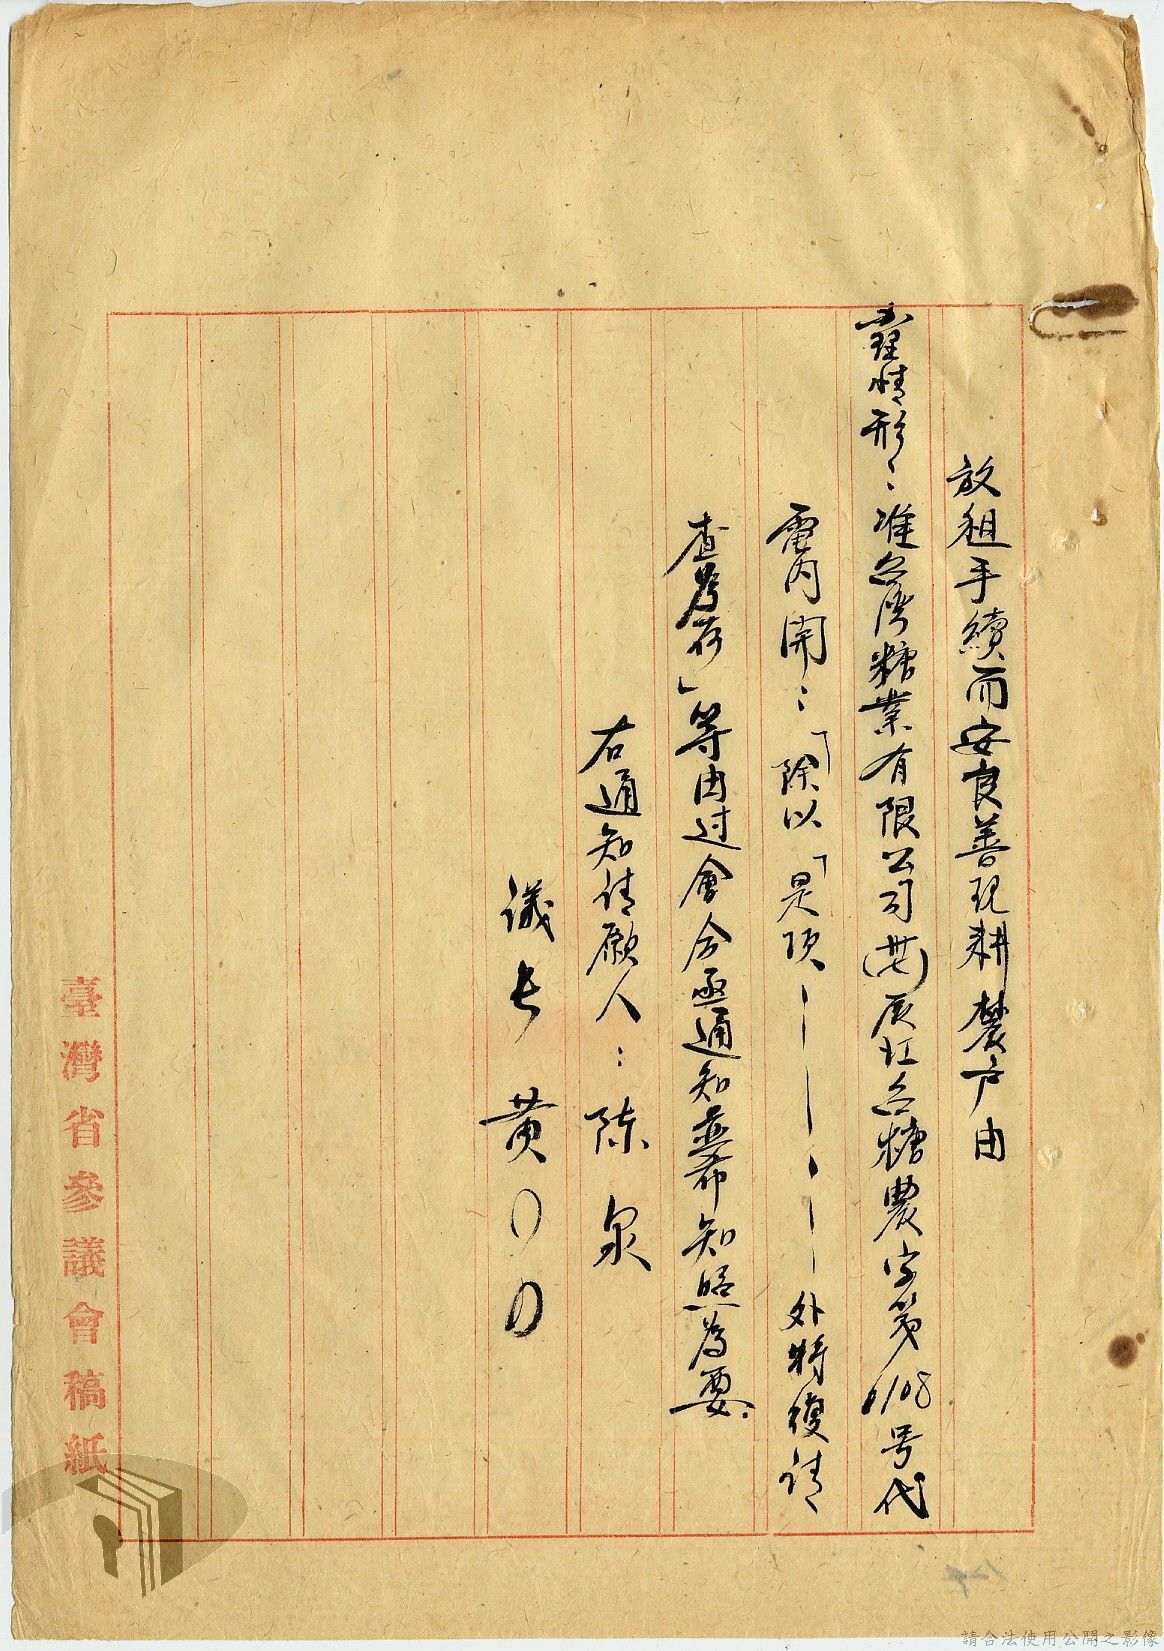 放租手續而安良善現耕農户由
办理情形：准台湾糖業有限公司(卅七)辰江台糖農字第6108号代
電内開：「除以「是項————外特復請
查為荷」等由过會合亟通知並希知照為要．
右通知请願人：陈泉
議長黄〇〇
臺灣省參議會稿紙
請合法使用公開之影像